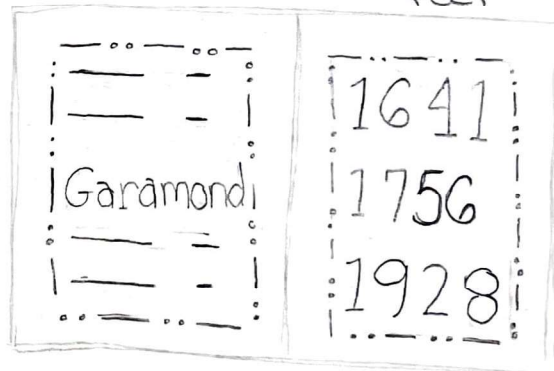 Garamond
1641
1756
1928